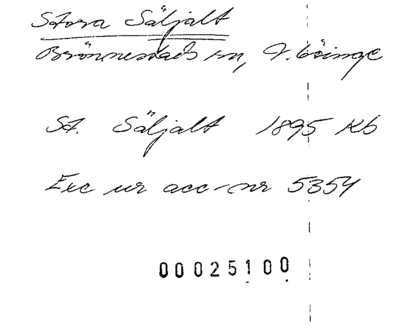 Stora Säljalt
Brönnestads sn, V. Göinge
St. Säljalt 1895 Kb
Exc ur acc-nr 5354
00025100